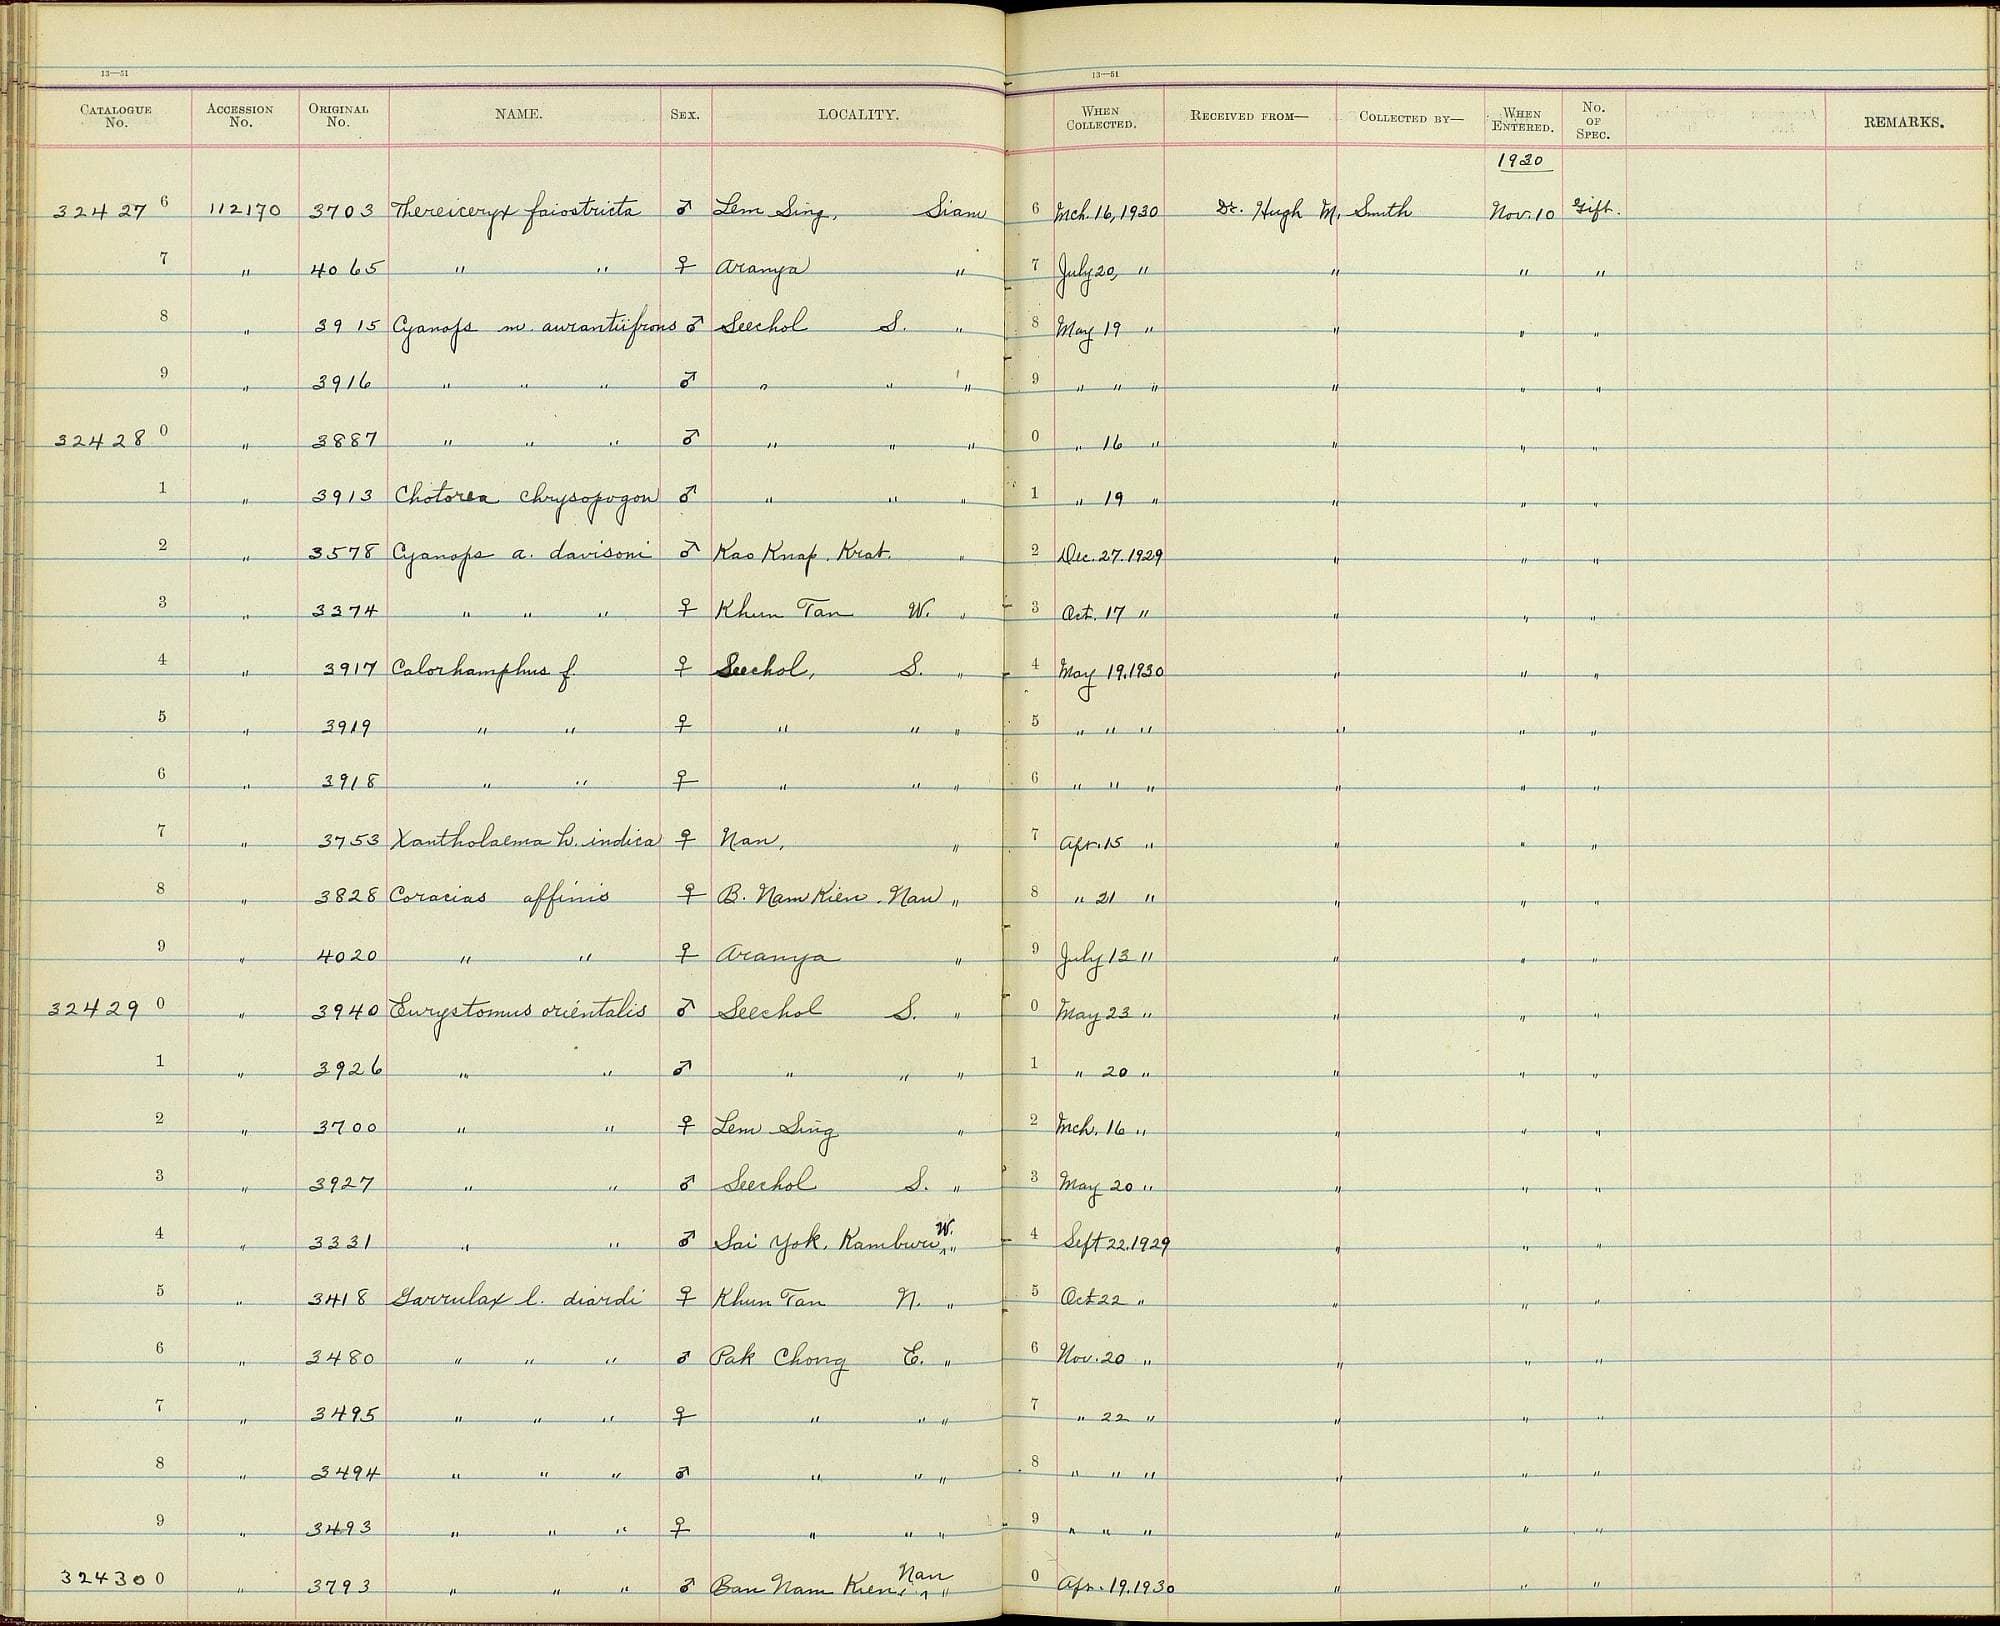 13—51 13—51
Catalogue No. Accession No. Original No. NAME. Sex. LOCALITY. When Collected. Received from— Collected by— When Entered. No. of Spec. REMARKS.
1930
32427 6 112170 3703 Thereiceryx faiostricta ♂ Lem Sing, Siam 6 Mch. 16, 1930 Dr. Hugh M. Smith Nov. 10 Gift.
7 " 4065 " " ♀ Aranya " 7 July 20, " " " "
8 " 3915 Cyanops m. aurantiifrons ♂ Seechol S. " 8 May 19 " " " "
9 " 3916 " " " ♂ " " " 9 " " " " " "
32428 0 " 3887 " " " ♂ " " " 0 " 16 " " " "
1 " 3913 Chotorea chrysopogon ♂ " " " 1 " 19 " " " "
2 " 3578 Cyanops a. davisoni ♂ Kao Knap, Krat. " 2 Dec. 27. 1929 " " "
3 " 3374 " " " ♀ Khun Tan W. " 3 Oct. 17 " " " "
4 " 3917 Calorhamphus f. ♀ Seechol, S. " 4 May 19. 1930 " " "
5 " 3919 " " ♀ " " " 5 " " " " " "
6 " 3918 " " ♀ " " " 6 " " " " " "
7 " 3753 Xantholaema h. indica ♀ Nan, " 7 Apr. 15 " " " "
8 " 3828 Coracias affinis ♀ B. Nam Kien, Nan " 8 " 21 " " " "
9 " 4020 " " ♀ Aranya " 9 July 13 " " " "
32429 0 " 3940 Eurystomus orientalis ♂ Seechol S. " 0 May 23 " " " "
1 " 3926 " " ♂ " " " 1 " 20 " " " "
2 " 3700 " " ♀ Lem Sing " 2 Mch. 16 " " " "
3 " 3927 " " ♂ Seechol S. " 3 May 20 " " " "
4 " 3331 " " ♂ Sai Yok, Kamburi, W. " 4 Sept 22. 1929 " " "
5 " 3418 Garrulax l. diardi ♀ Khun Tan N. " 5 Oct 22 " " " "
6 " 3480 " " " ♂ Pak Chong E. " 6 Nov. 20 " " " "
7 " 3495 " " " ♀ " " " 7 " 22 " " " "
8 " 3494 " " " ♂ " " " 8 " " " " " "
9 " 3493 " " " ♀ " " " 9 " " " " " "
32430 0 " 3793 " " " ♂ Ban Nam Kien, Nan " 0 Apr. 19. 1930 " " "